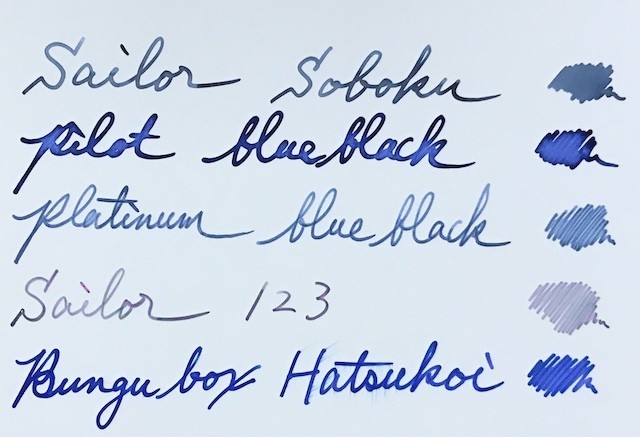 Sailor Soboku
Pilot blue black
Platinum blue black
Sailor 123
Bungubox Hatsukoi